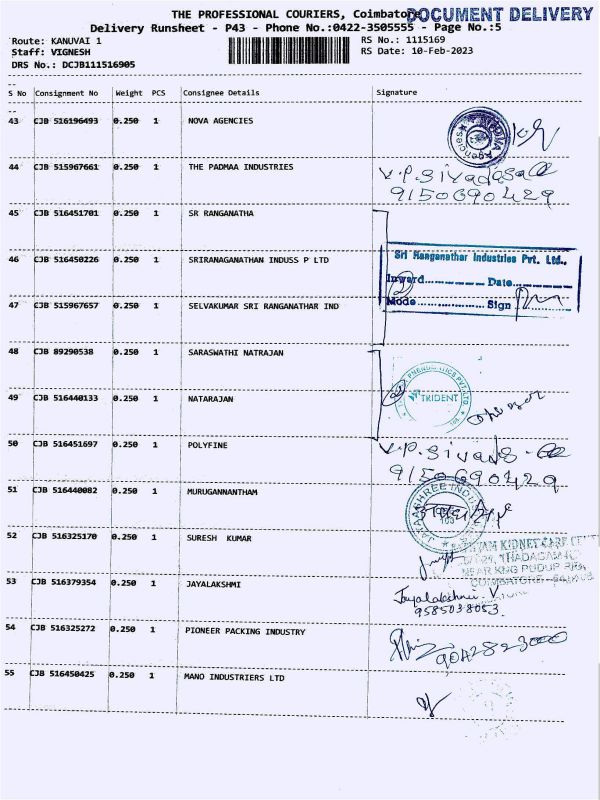 THE PROFESSIONAL COURIERS, Coimbatore
DOCUMENT DELIVERY
Delivery Runsheet - P43 - Phone No.:0422-3505555 - Page No.:5
Route: KANUVAI 1 RS No.: 1115169
Staff: VIGNESH RS Date: 10-Feb-2023
DRS No.: DCJB111516905
S No Consignment No Weight PCS Consignee Details Signature
43 CJB 516196493 0.250 1 NOVA AGENCIES
44 CJB 515967661 0.250 1 THE PADMAA INDUSTRIES
9150690429
45 CJB 516451701 0.250 1 SR RANGANATHA
46 CJB 516450226 0.250 1 SRIRANAGANATHAN INDUSS P LTD
Sri Ranganathar Industries Pvt. Ltd.,
Inward.............. Date..............
Mode.............. Sign ..............
47 CJB 515967657 0.250 1 SELVAKUMAR SRI RANGANATHAR IND
48 CJB 89290538 0.250 1 SARASWATHI NATRAJAN
TRIDENT
49 CJB 516440133 0.250 1 NATARAJAN
50 CJB 516451697 0.250 1 POLYFINE
9150690429
51 CJB 516440082 0.250 1 MURUGANNANTHAM
52 CJB 516325170 0.250 1 SURESH KUMAR
KIDNEY CARE
53 CJB 516379354 0.250 1 JAYALAKSHMI
Jayalakshmi. V
9585038053.
54 CJB 516325272 0.250 1 PIONEER PACKING INDUSTRY
55 CJB 516450425 0.250 1 MANO INDUSTRIERS LTD